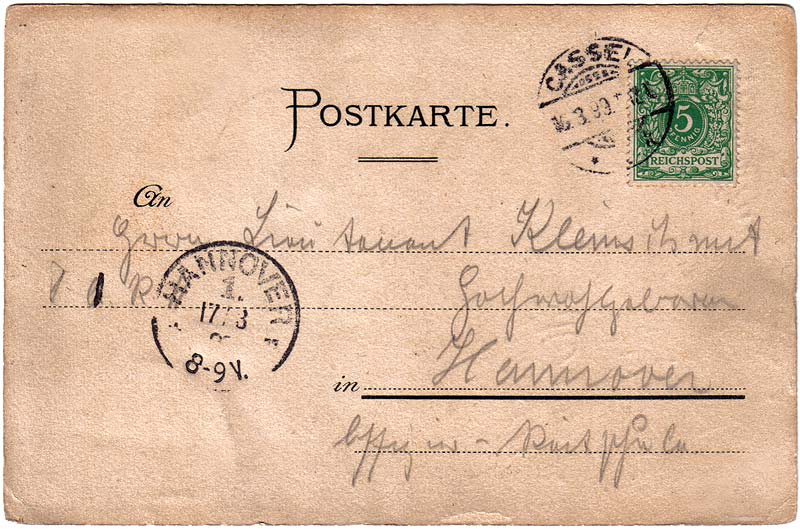 POSTKARTE.
CASSEL
16.3.99.
5
PFENNIG
REICHSPOST
An
Herrn Lieutenant Kleinschmit
Hochwohlgeboren
HANNOVER
1.
17/3
8-9V.
in Hannover
Offizier-Reitschule